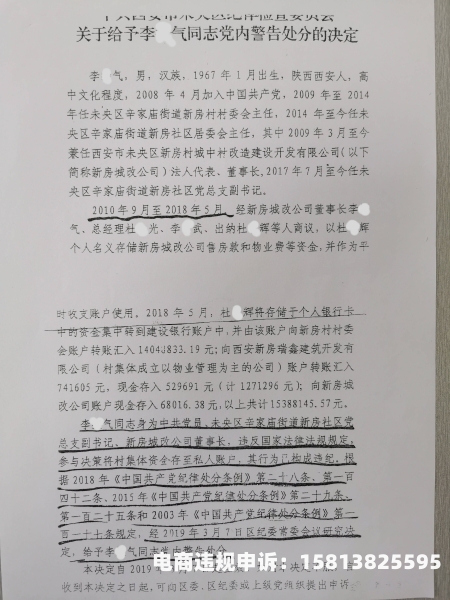 中共西安市未央区纪律检查委员会
关于给予李 气同志党内警告处分的决定
李 气,男,汉族,1967年1月出生,陕西西安人,高
中文化程度,2008年4月加入中国共产党,2009年至2014
年任未央区辛家庙街道新房村村委会主任,2014年至今任未
央区辛家庙街道新房社区居委会主任,其中2009年3月至今
兼任西安市未央区新房村城中村改造建设开发有限公司(以下
简称新房城改公司)法人代表、董事长,2017年7月至今任未
央区辛家庙街道新房社区党总支副书记。
2010年9月至2018年5月,经新房城改公司董事长李
气、总经理杜 光、李 武、出纳杜 辉等人商议,以杜 辉
个人名义存储新房城改公司售房款和物业费等资金,并作为平
时收支账户使用。2018年5月,杜 辉将存储于个人银行卡
中的资金集中转到建设银行账户中,并由该账户向新房村村委
会账户转账汇入1404J833.19元;向西安新房瑞鑫建筑开发有
限公司(村集体成立以物业管理为主的公司)账户转账汇入
741605元,现金存入529691元(计1271296元);向新房城
改公司账户现金存入68016.38元,以上共计15388145.57元。
李 气同志身为中共党员、未央区辛家庙街道新房社区党
总支副书记、新房城改公司董事长,违反国家法律法规规定,
参与决策将村集体资金存至私人账户,其行为已构成违纪。根
据2018年《中国共产党纪律处分条例》第二十八条、第一百
四十二条、2015年《中国共产党纪律处分条例》第二十九条、
第一百二十五条和2003年《中国共产党纪律处分条例》第一
百一十七条规定,经2019年3月7日区纪委常委会议研究决
定,给予李 气同志党内警告处分。
电商违规申诉:15813825595
本决定自2019
收到本决定之日起,可向区委、区纪委或上级党组织提出申诉